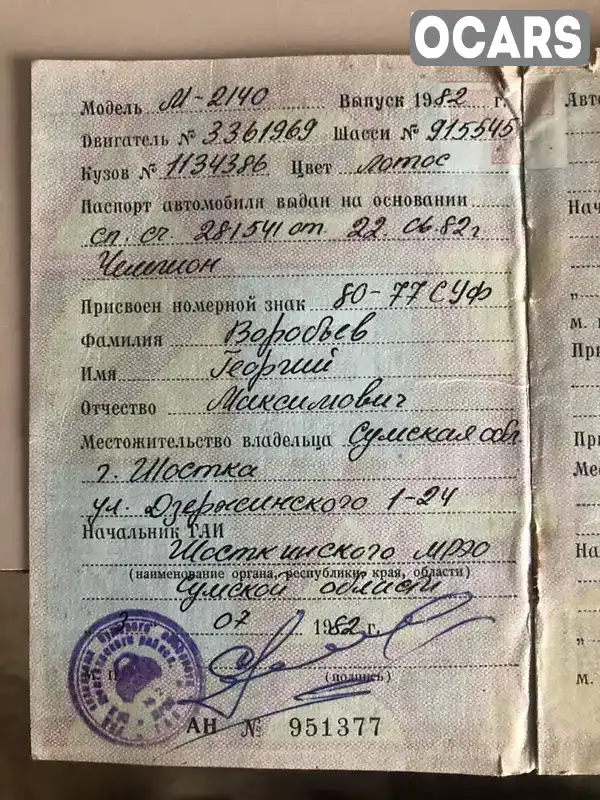 OCARS
Модель М-2140 Выпуск 1982 г.
Двигатель № 3361969 Шасси № 915545
Кузов № 1134386 Цвет лотос
Паспорт автомобиля выдан на основании
сп. сч. 281541 от 22.06.82г
Присвоен номерной знак 80-77 СУФ
Фамилия Воробьев
Имя Георгий
Отчество Максимович
Местожительство владельца Сумская обл
г. Шостка
ул. Дзержинского 1-24
Начальник ГАИ
Шосткинского МРЭО
(наименование органа, республики, края, области)
Сумской области
„ 3 07 1982 г.
М. П. (подпись)
АН № 951377